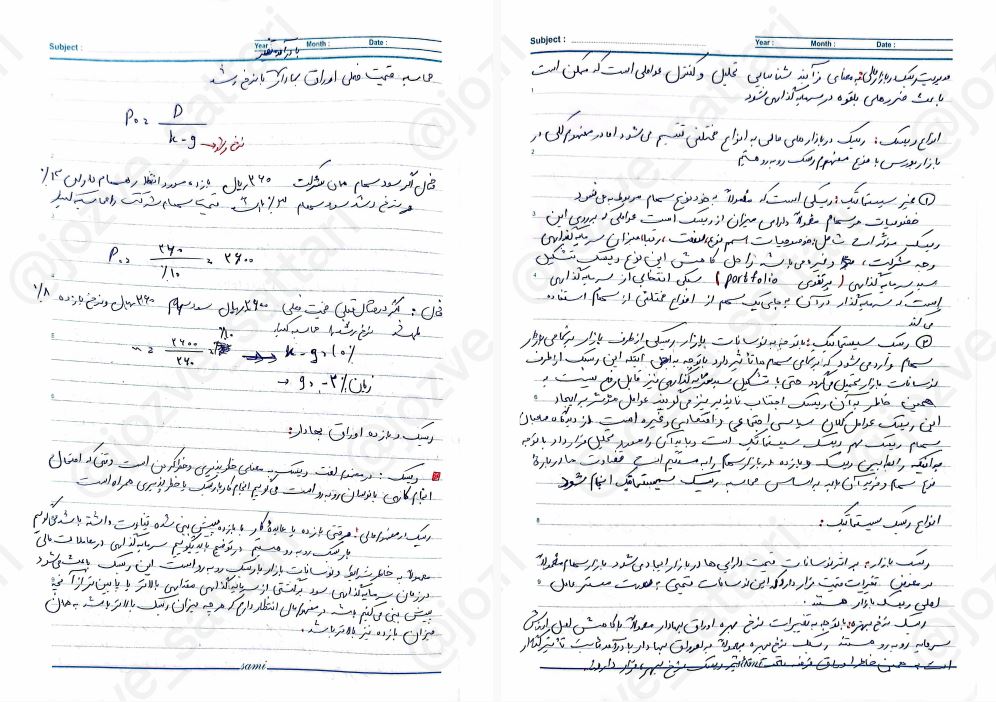 Subject :
Year : Month : Date :
با درآمد متغیر
محاسبه قیمت فعلی اوراق بهادار با نرخ رشد
P₀ = D / k-g → نرخ رشد
مثال اگر سود سهام شرکت ۳۶۰ ریال بازده مورد انتظار سهام ۱۳٪
نرخ رشد سود سهام ۳٪ باشد قیمت سهام شرکت را محاسبه کنید
P₀ = ۳۶۰ / ٪۱۰ = ۳۶۰۰
مثال : اگر در مثال قبلی قیمت فعلی ۳۶۰۰ ریال سود سهام ۳۶۰ ریال و نرخ بازده ۸٪
باشد نرخ رشد را محاسبه کنید
k-g = ۱۰٪
g = -۳٪
ریسک و بازده اوراق بهادار:
ریسک : در معنا لغت ریسک به معنای خطرپذیری و خطر کردن است وقتی که احتمال
انجام کاری با نوسان روبه رو است می گوییم انجام کار با ریسک یا خطرپذیری همراه است
ریسک در مفهوم مالی: هر وقتی بازده یا عایده کار با بازده پیش بینی شده تفاوت داشته باشد می گوییم
با ریسک روبه رو هستیم در توضیح باید بگوییم سرمایه گذاری در معاملات مالی
معمولا به خاطر شرایط و نوسانات بازار با ریسک روبه رو است این ریسک باعث می شود
در زمان سرمایه گذاری سود برگشتی از سرمایه گذاری مقداری بالاتر یا پایین تر از آنچه
پیش بینی می کنیم باشد در مفهوم مالی انتظار داریم که هر چه میزان ریسک بالاتر باشد به همان
میزان بازده نیز بالاتر باشد.
sami
Subject :
Year : Month : Date :
مدیریت ریسک در بازار مالی: به معنای فرآیند شناسایی تحلیل و کنترل عواملی است که ممکن است
باعث ضررهای بالقوه در سرمایه گذاری شود
انواع ریسک : ریسک در بازارهای مالی به انواع مختلفی تقسیم می شود اما در مفهوم کلی در
بازار بورس با دو نوع مفهوم ریسک روبه رو هستیم
① غیر سیستماتیک: ریسکی است که معمولا به خود نوع سهام مربوط می شود
خصوصیات هر سهام معمولا دارای میزان از ریسک است عواملی که بر روی این
ریسک مؤثر است شامل: خصوصیات اسهم نوع صنعت، رقبا، میزان سرمایه گذاری
وجه شرکت، و غیره می باشد راه حل کاهش این نوع ریسک تشکیل
سبد سرمایه گذاری (پرتفوی portfolio) سبکی انتخابی از سرمایه گذاری
است که سرمایه گذار در آن به جای یک سهم از انواع مختلفی از سهام استفاده
می کند
② ریسک سیستماتیک: با توجه به نوسانات بازار ریسکی از طرف بازار بر تمامی بازار
سهام وارد می شود که بر تمامی سهام ها تأثیر دارد با توجه به اینکه این ریسک از طرف
نوسانات بازار تحمیل می گردد حتی با تشکیل سبد سرمایه گذاری نیز قابل رفع نیست به
همین خاطر به آن ریسک اجتناب ناپذیر نیز می گویند عوامل مؤثر بر ایجاد
این ریسک عوامل کلان سیاسی اجتماعی و اقتصادی و غیره است از دیدگاه صاحبان
سهام ریسک مهم ریسک سیستماتیک است و باید آن را مورد تحلیل قرار داد با توجه
به اینکه رابطه بین ریسک و بازده در بازار سهام رابطه مستقیم است قضاوت ما درباره
نوع سهام و خرید آن باید بر اساس محاسبه ریسک سیستماتیک انجام شود
انواع ریسک سیستماتیک:
ریسک بازار: به اثر نوسانات قیمت دارایی ها در بازار ایجاد می شود. بازار سهام معمولا
در معرض تغییرات قیمت قرار دارد این نوسانات قیمتی به صورت مستمر عامل
اصلی ریسک بازار هستند.
ریسک نرخ بهره: با توجه به تغییرات نرخ بهره اوراق بهادار معمولا با کاهش اصل ارزش
سرمایه روبه رو هستند ریسک نرخ بهره معمولا به اوراق بهادار با درآمد ثابت تأثیرگذار
است به همین خاطر اوراق قرضه تحت تأثیر ریسک نرخ بهره قرار دارند.
@jozve_sattari